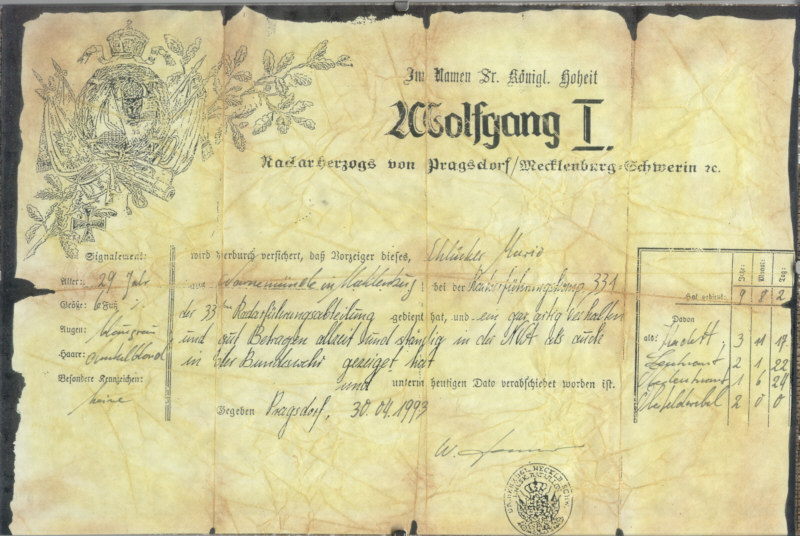 Im Namen Sr. Königl. Hoheit
Wolfgang I.
Radarherzogs von Pragsdorf/Mecklenburg-Schwerin ꝛc.
Signalement:
Alter: 29 Jahr
Größe: 6 Fuß
Augen: blaugrau
Haare: dunkelblond
Besondere Kennzeichen:
keine
wird hierdurch versichert, daß Vorzeiger dieses,
aus Warnemünde in bei der Radarführungskomp. 331
der 33. Radarführungsabteilung gedient hat, und ein gar artig Verhalten
und gut Betragen allzeit und ständig in der NVA als auch
in der Bundeswehr gezeiget hat
und unterm heutigen Dato verabschiedet worden ist.
Gegeben Pragsdorf, 30.04.1993
W.
Jahr: Monat: Tag:
Hat gedient: 9 8 2
Davon
als: 3 11 17
Leutnant 2 1 22
Oberleutnant 1 6 24
Oberfeldwebel 2 0 0